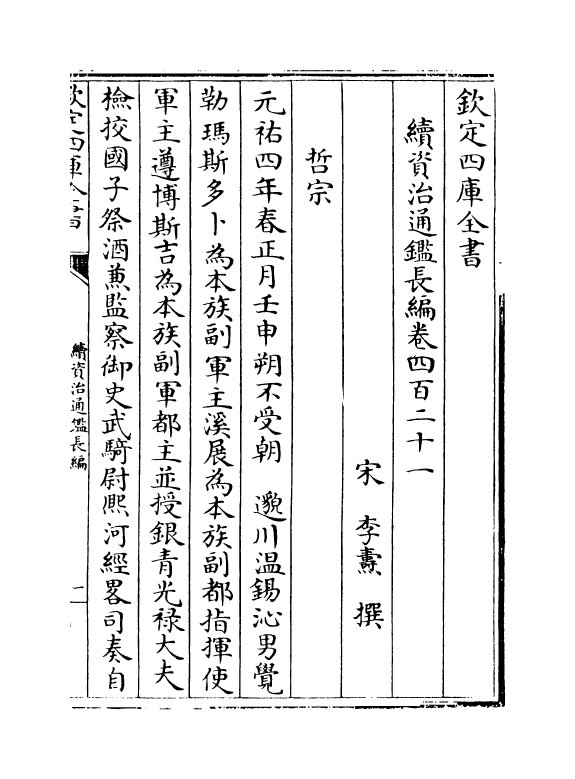 欽定四庫全書
續資治通鑑長編卷四百二十一
宋 李燾 撰
哲宗
元祐四年春正月壬申朔不受朝 邈川温錫沁男覺
勒瑪斯多卜為本族副軍主溪展為本族副都指揮使
軍主遵博斯吉為本族副軍都主並授銀青光禄大夫
檢挍國子祭酒兼監察御史武騎尉熈河經畧司奏自
欽定四庫全書
續資治通鑑長編